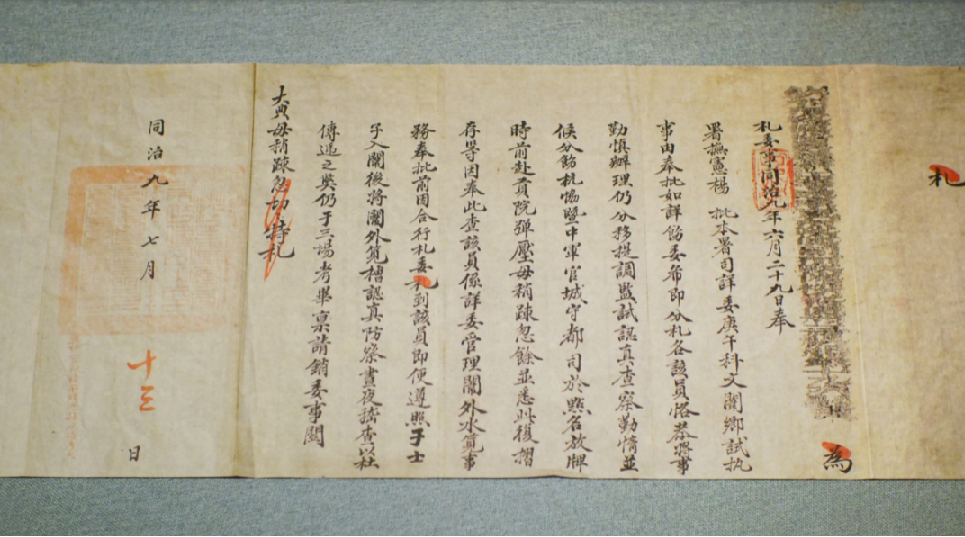 札
為
札委事同治九年六月二十九日奉
署撫憲楊 批本署司詳委庚午科文闈鄉試執
事由奉批如詳飭委希即分札各該員恪恭將事
勤慎辦理仍分移提調監試認真查察勤惰並
候分飭杭協暨中軍官城守都司於點名放牌
時前赴貢院彈壓毋稍疎忽餘並悉此復摺
存等因奉此查該員係詳委管理闈外水筧事
務奉批前因合行札委札到該員即便遵照于士
子入闈後將闈外筧槽認真防察晝夜稽查以杜
傳遞之弊仍于三場考畢稟請銷委事關
大典毋稍疎忽切切特札
同治九年七月
十三
日